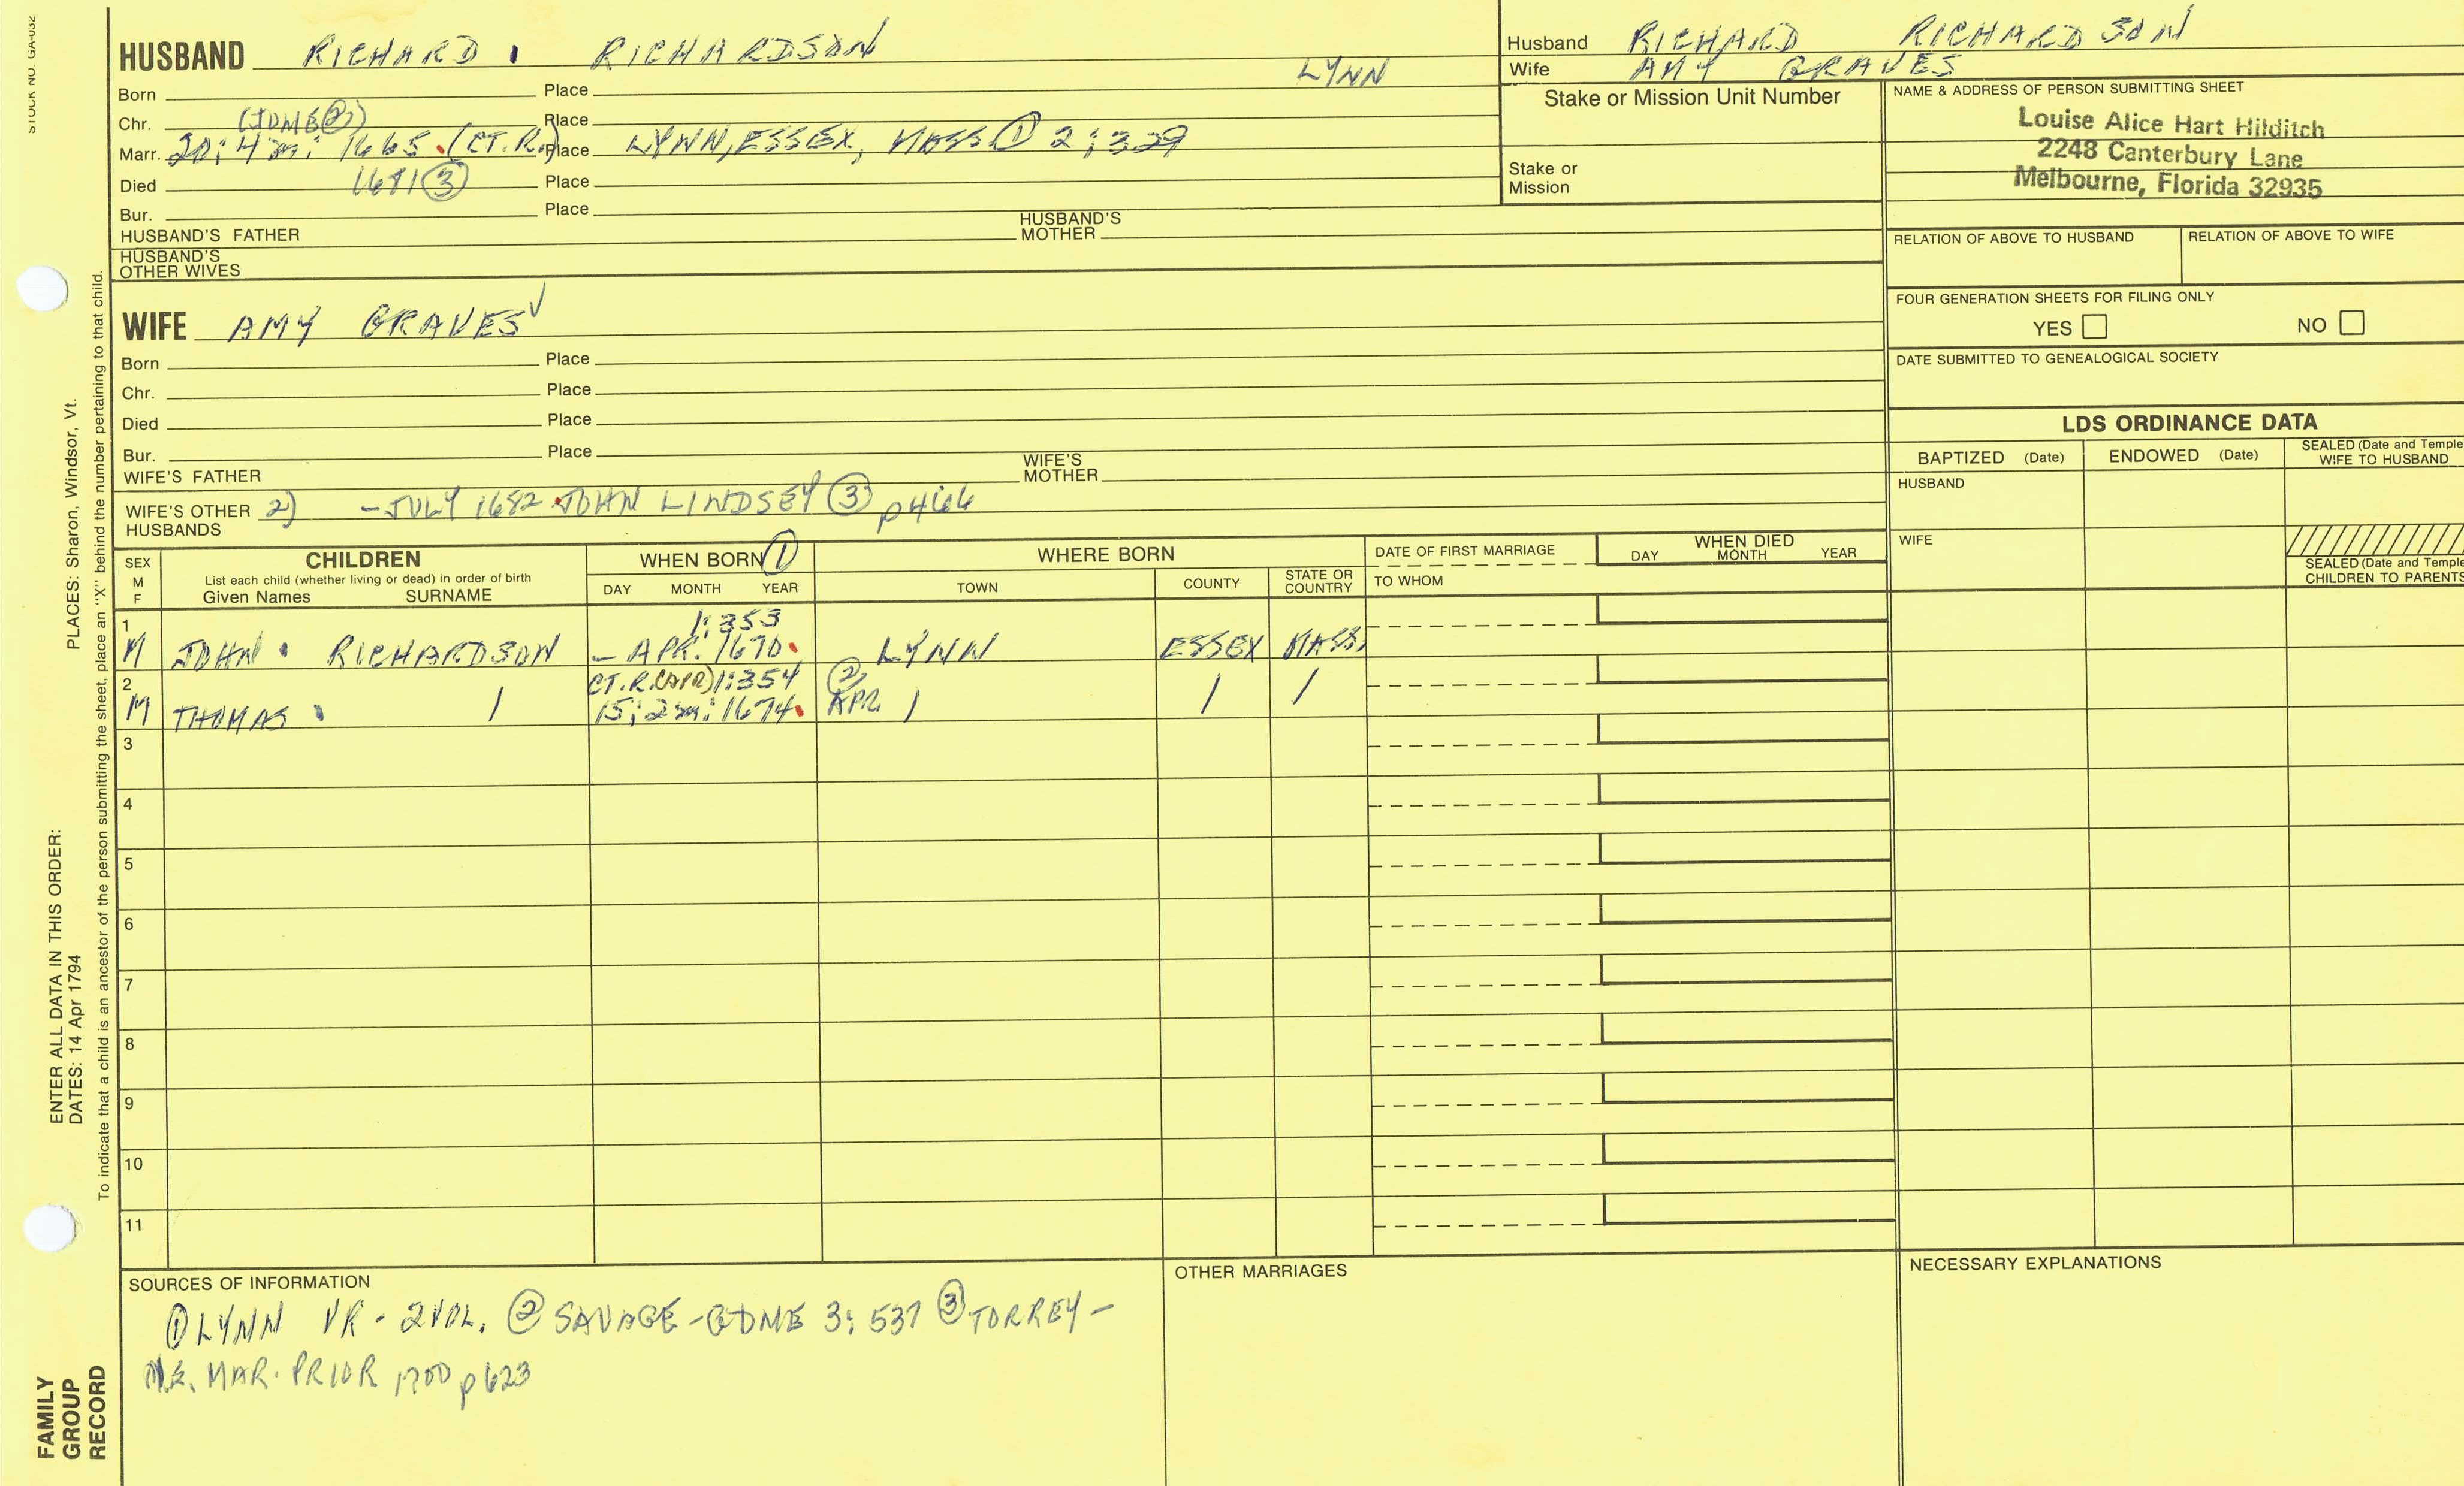 STOCK NO. GA-032
HUSBAND RICHARD RICHARDSON
LYNN
Born Place
Chr. (JUNE②) Place
Marr. 20: 4m: 1665. (CT. R.) Place LYNN, ESSEX, MASS ① 2:329
Died 1681③ Place
Bur. Place
HUSBAND'S FATHER HUSBAND'S MOTHER
HUSBAND'S OTHER WIVES
WIFE AMY GRAVES √
Born Place
Chr. Place
Died Place
Bur. Place
WIFE'S FATHER WIFE'S MOTHER
WIFE'S OTHER HUSBANDS 2) - JULY 1682 JOHN LINDSEY ③ p466
Husband RICHARD RICHARDSON
Wife AMY GRAVES
Stake or Mission Unit Number
Stake or Mission
NAME & ADDRESS OF PERSON SUBMITTING SHEET
Louise Alice Hart Hilditch
2248 Canterbury Lane
Melbourne, Florida 32935
RELATION OF ABOVE TO HUSBAND RELATION OF ABOVE TO WIFE
FOUR GENERATION SHEETS FOR FILING ONLY
YES NO
DATE SUBMITTED TO GENEALOGICAL SOCIETY
LDS ORDINANCE DATA
BAPTIZED (Date) ENDOWED (Date) SEALED (Date and Temple
WIFE TO HUSBAND
HUSBAND
WIFE
SEALED (Date and Temple
CHILDREN TO PARENTS
SEX M F
CHILDREN
List each child (whether living or dead) in order of birth
Given Names SURNAME
WHEN BORN ①
DAY MONTH YEAR
WHERE BORN
TOWN COUNTY STATE OR COUNTRY
DATE OF FIRST MARRIAGE
TO WHOM
WHEN DIED
DAY MONTH YEAR
1 1:353
M JOHN RICHARDSON - APR. 1670. LYNN ESSEX MASS.
2 CT. R. (APR) 1:354 ②
M THOMAS / 15: 2m: 1674. APR. / / /
3
4
5
6
7
8
9
10
11
SOURCES OF INFORMATION
① LYNN VR - 2 VOL. ② SAVAGE - GDNE 3: 537 ③ TORREY -
N.E. MAR. PRIOR 1700 p623
OTHER MARRIAGES
NECESSARY EXPLANATIONS
FAMILY GROUP RECORD
ENTER ALL DATA IN THIS ORDER:
DATES: 14 Apr 1794
PLACES: Sharon, Windsor, Vt.
To indicate that a child is an ancestor of the person submitting the sheet, place an "X" behind the number pertaining to that child.